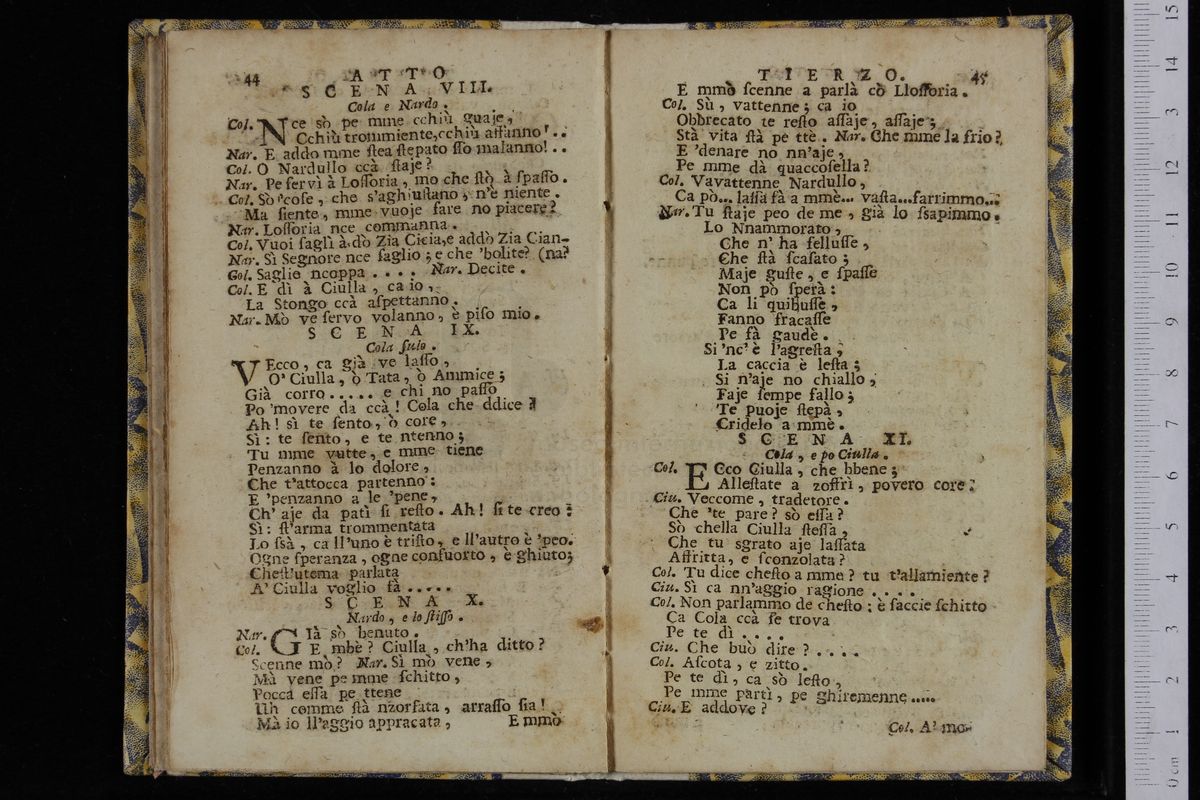 44 ATTO
SCENA VIII.
Cola e Nardo.
Col. Nce sò pe mme cchiù guaje,
Cchiù trommiente, cchiù affanno!..
Nar. E addo mme stea stepato sso malanno!..
Col. O Nardullo ccà staje?
Nar. Pe servì à Lossoria, mo che stò à spasso.
Col. Sò 'cose, che s'aghiustano, n'è niente.
Ma siente, mme vuoje fare no piacere?
Nar. Lossoria nce commanna.
Col. Vuoi saglì a dò Zia Cicia, e addò Zia Cian-
Nar. Sì Segnore nce saglio; e che 'bolite? (na?
Col. Saglie ncoppa.... Nar. Decite.
Col. E dì à Ciulla, ca io,
La Stongo ccà aspettanno.
Nar. Mò ve servo volanno, è piso mio.
SCENA IX.
Cola sulo.
VEcco, ca già ve lasso,
O' Ciulla, ò Tata, ò Ammice;
Già corro..... e chi no passo
Po 'movere da ccà! Cola che ddice?
Ah! sì te sento, ò core,
Sì: te sento, e te ntenno;
Tu mme vutte, e mme tiene
Penzanno à lo dolore,
Che t'attocca partenno:
E 'penzanno a le 'pene,
Ch' aje da patì si resto. Ah! si te creo:
Sì: st'arma trommentata
Lo ssà, ca ll'uno è tristo, e ll'autro è 'peo.
Ogne speranza, ogne confuorto, è ghiuto;
Chest'utema parlata
A' Ciulla voglio fà.....
SCENA X.
Nardo, e lo stisso.
Nar. GIà sò benuto.
Col. E mbè? Ciulla, ch'ha ditto?
Scenne mò? Nar. Sì mò vene,
Mà vene pe mme schitto,
Pocca essa pe ttene
Uh comme stà nzorfata, arrasso sia!
Mà io ll'aggio appracata,
E mmò
TIERZO. 45
E mmò scenne a parlà cò Llossoria.
Col. Sù, vattenne; ca io
Obbrecato te resto assaje, assaje;
Stà vita stà pe ttè. Nar. Che mme la frio?
E 'denare no nn'aje,
Pe mme dà quaccosella?
Col. Vavattenne Nardullo,
Ca pò... lassa fà a mmè... vasta...farrimmo...
Nar. Tu staje peo de me, già lo ssapimmo.
Lo Nnammorato,
Che n' ha fellusse,
Che stà scasato;
Maje guste, e spasse
Non pò sperà:
Ca li quibusse,
Fanno fracasse
Pe fà gaudè.
Si 'nc' è l'agresta,
La caccia è lesta;
Si n'aje no chiallo,
Faje sempe fallo;
Te puoje stepà,
Cridelo a mmè.
SCENA XI.
Cola, e po Ciulla.
Col. ECco Ciulla, che bbene;
Allestate a zoffrì, povero core:
Ciu. Veccome, tradetore.
Che 'te pare? sò essa?
Sò chella Ciulla stessa,
Che tu sgrato aje lassata
Affritta, e sconzolata?
Col. Tu dice chesto a mme? tu t'allamiente?
Ciu. Sì ca nn'aggio ragione....
Col. Non parlammo de chesto: è saccie schitto
Ca Cola ccà se trova
Pe te dì....
Ciu. Che buò dire?....
Col. Ascota, e zitto.
Pe te dì, ca sò lesto,
Pe mme partì, pe ghiremenne.....
Ciu. E addove?
Col. A' mo-